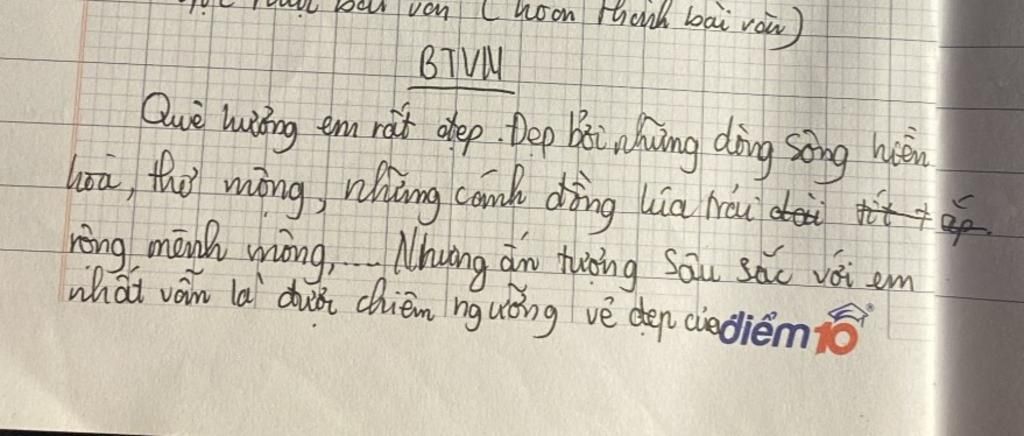 bài văn (hoàn thành bài văn)
BTVN
Quê hương em rất đẹp. Đẹp bởi những dòng sông hiền
hoà, thơ mộng, những cánh đồng lúa trải dài tít tắp
rộng mênh mông,... Nhưng ấn tượng sâu sắc với em
nhất vẫn là được chiêm ngưỡng vẻ đẹp của
điểm10